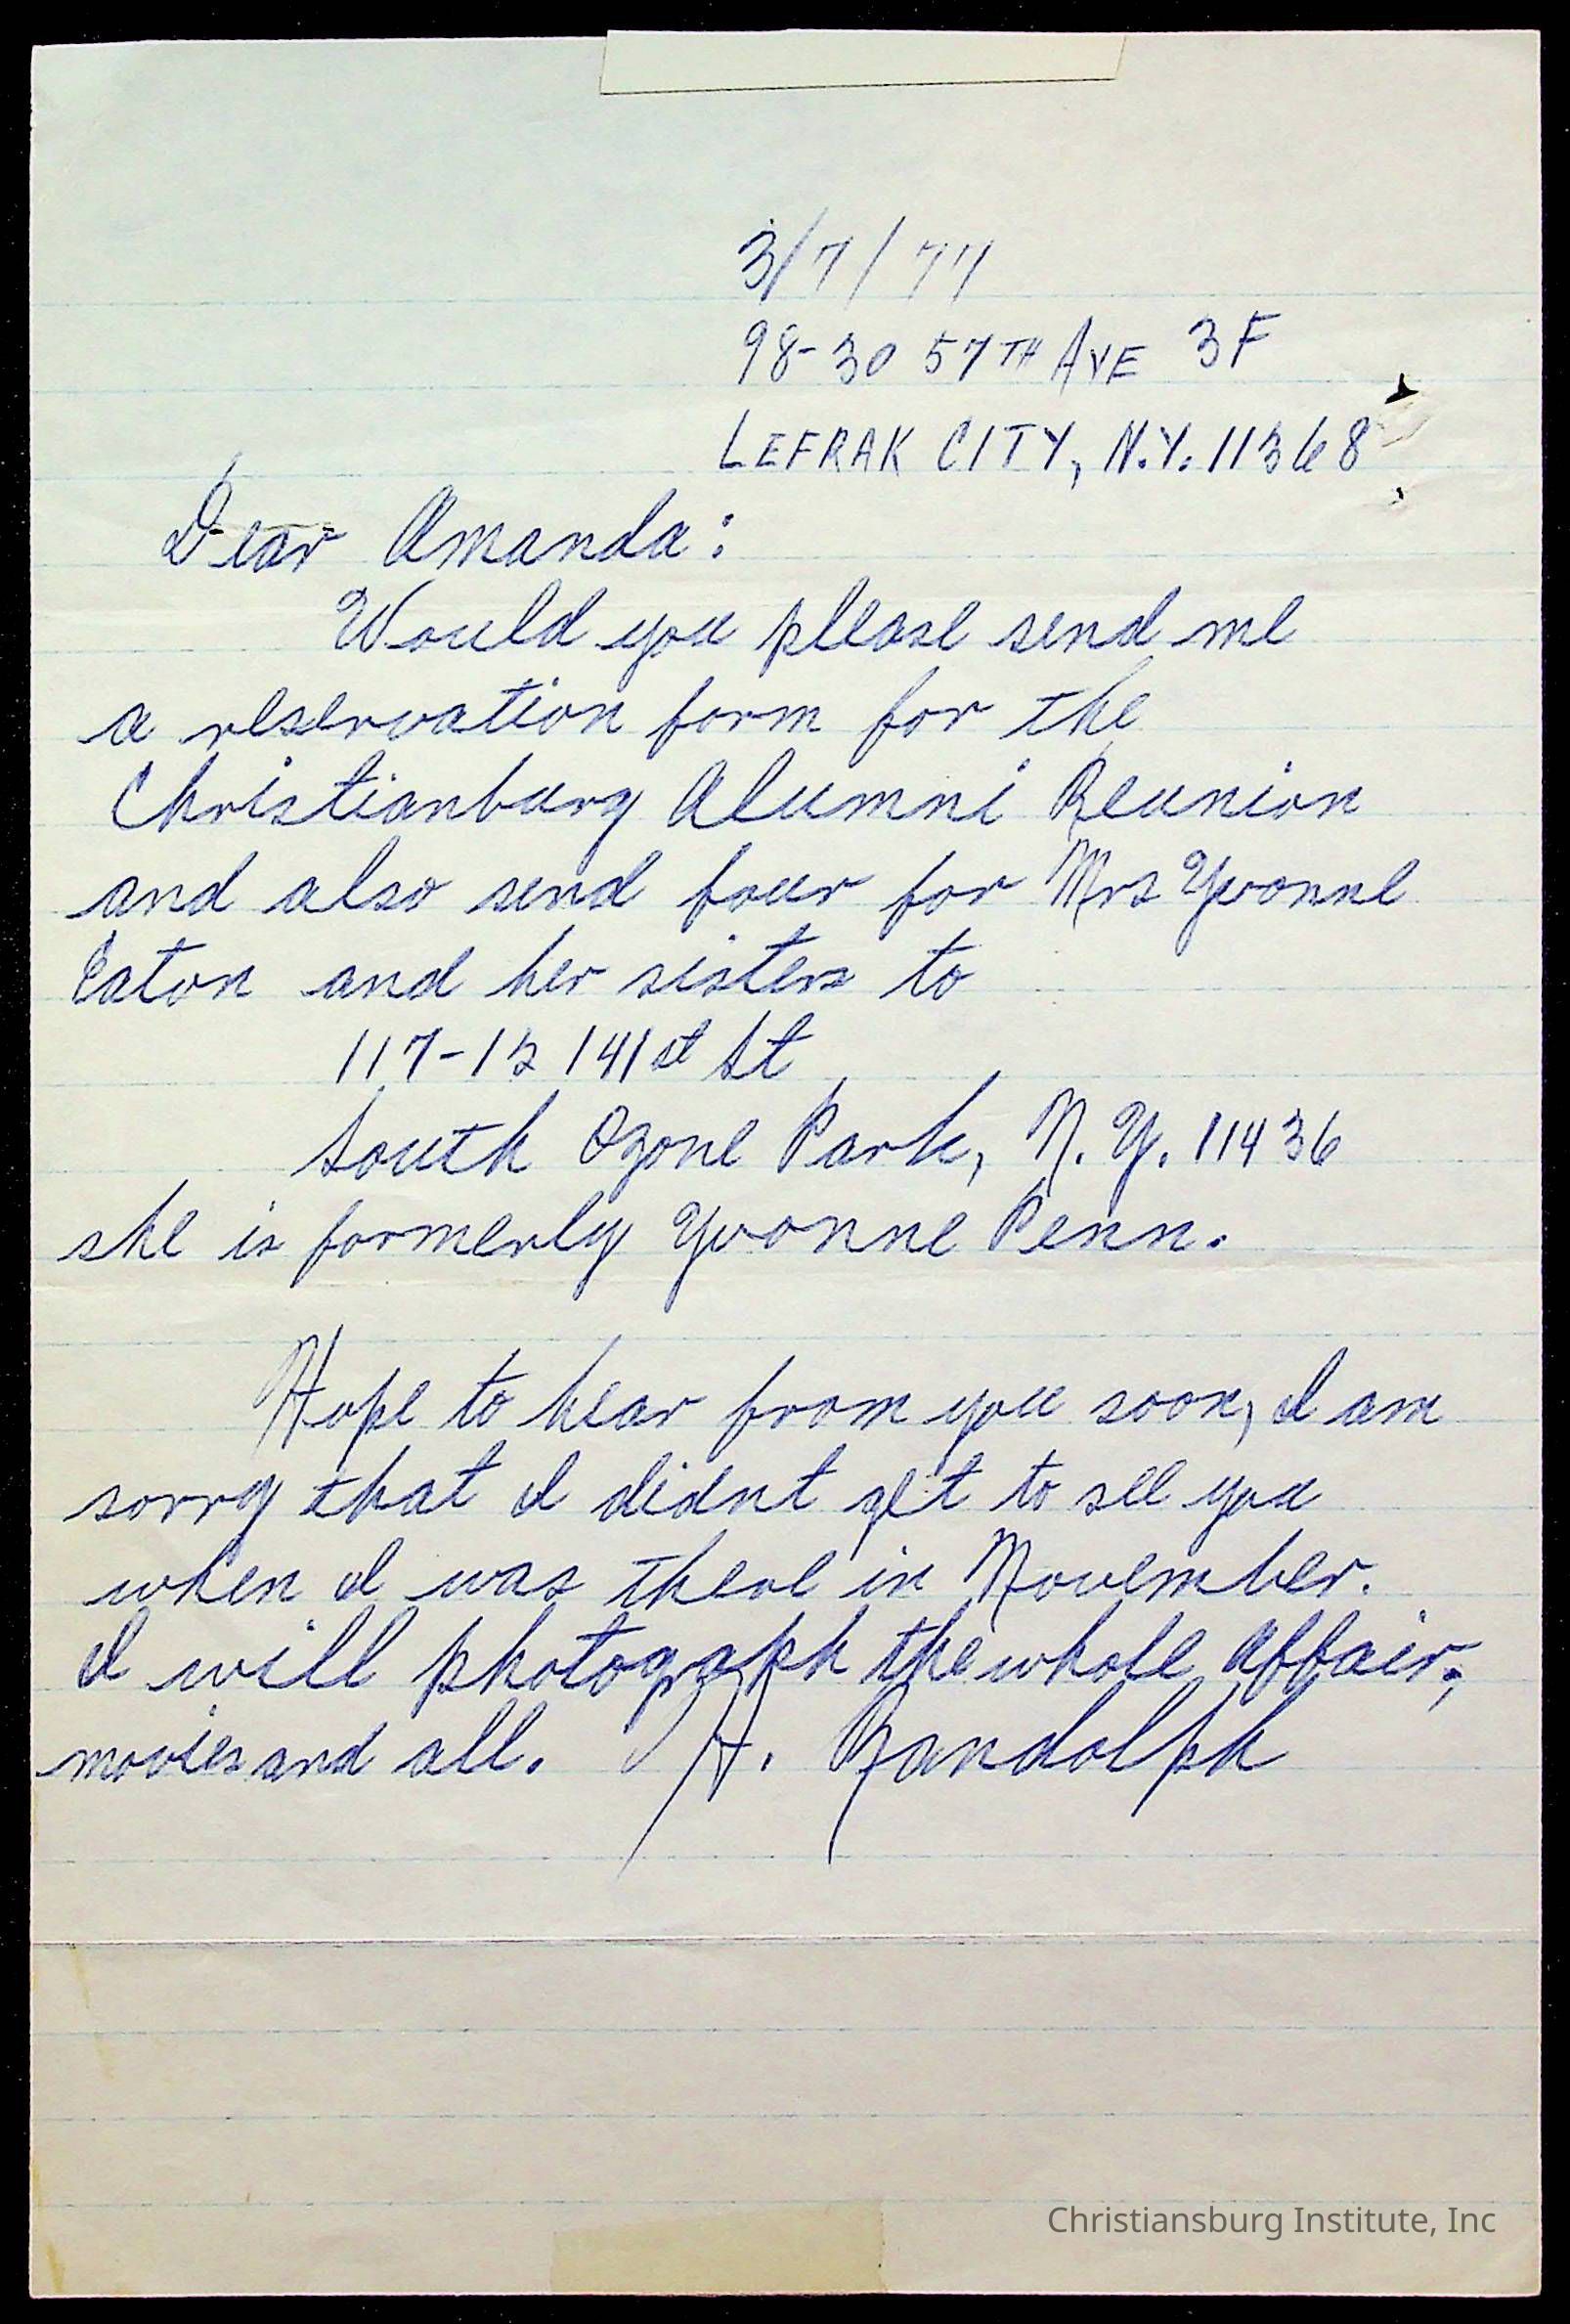 3/7/77
98-30 57TH AVE 3F
LEFRAK CITY, N.Y. 11368
Dear Amanda:
Would you please send me
a reservation form for the
Christianburg Alumni Reunion
and also send four for Mrs Yvonne
Eaton and her sisters to
117-13 141st St
South Ozone Park, N.Y. 11436
she is formerly Yvonne Penn.
Hope to hear from you soon, I am
sorry that I didnt get to see you
when I was there in November.
I will photograph the whole affair,
movies and all. H. Randolph
Christiansburg Institute, Inc